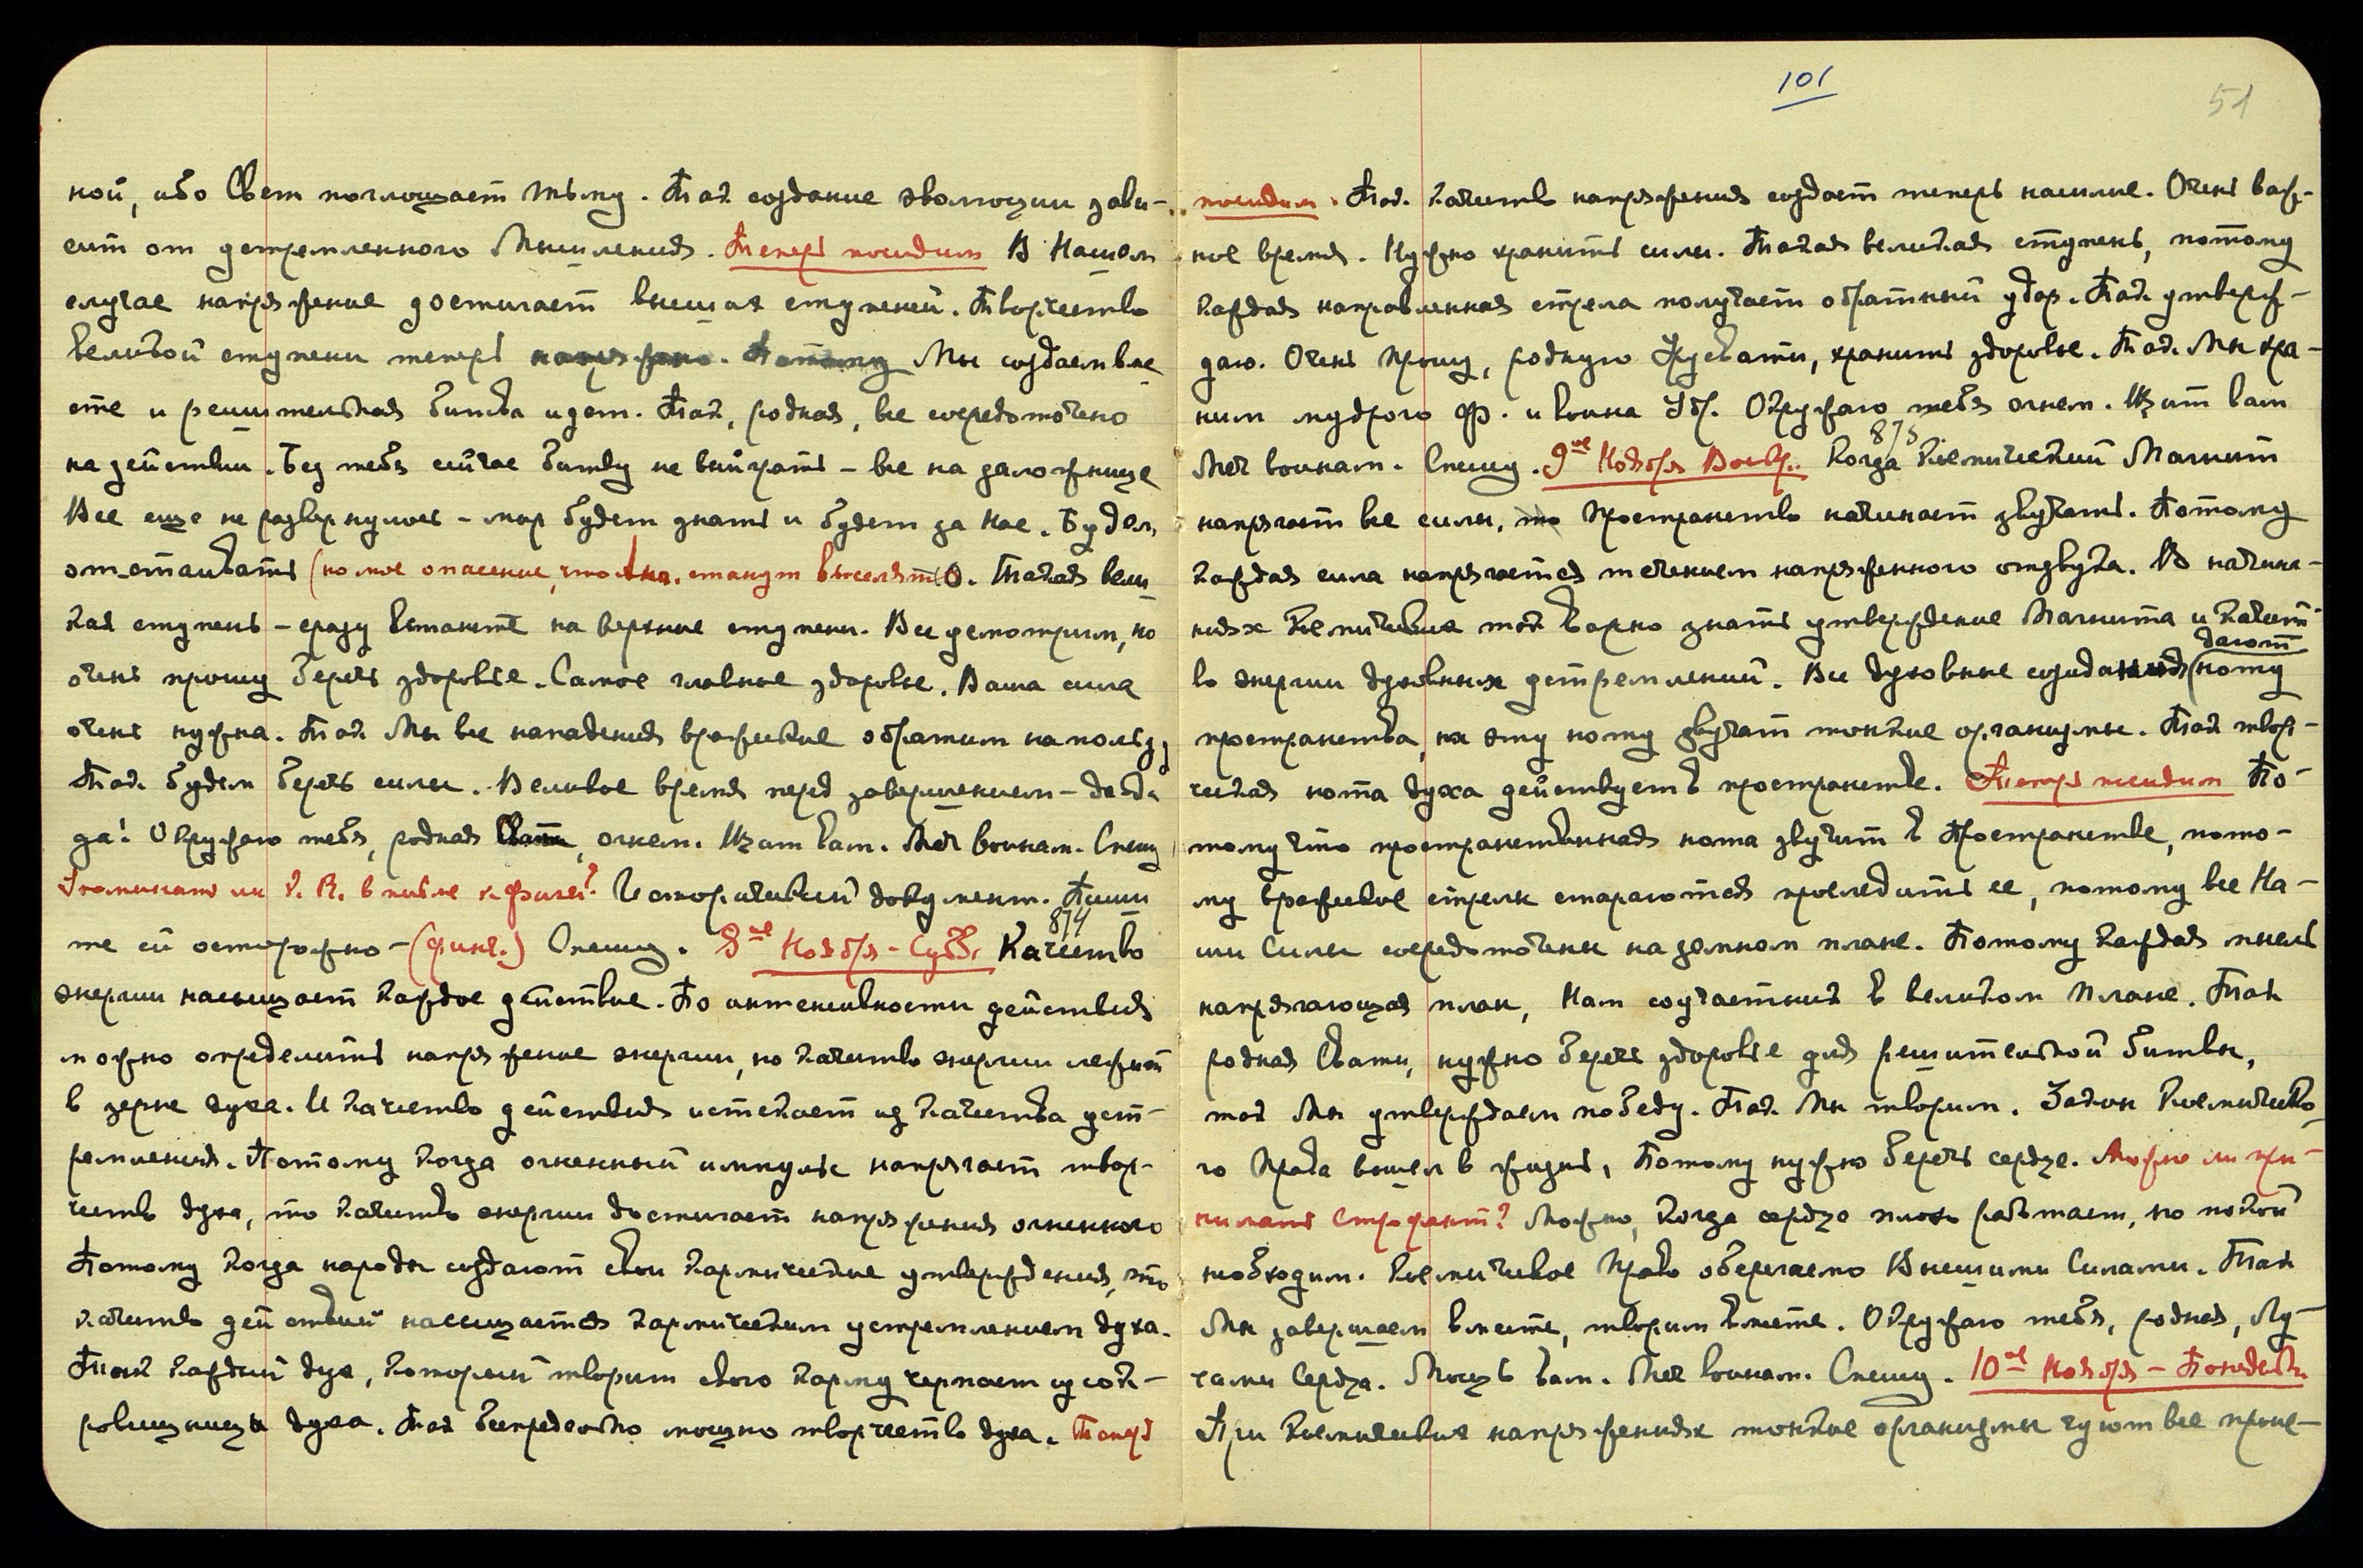 ной, ибо Свет поглощает тьму. Так создание эволюции зави-
сит от устремленного Мышления. Теперь посидим В Нашем
случае напряжение достигает высших ступеней. Творчество
великой ступени теперь напряжено. Потому Мы создаем вме
сте и решительная битва идет. Так, родная, все сосредоточено
на действии. Без тебя сейчас битву не выиграть – все на заложнице
Все еще не развернулось – мир будет знать и будет за Нас. Будем
отстаивать (но мое опасение, что станут выселять). Такая вели
кая ступень – сразу встанете на верхние ступени. Все усмотрим, но
очень прошу беречь здоровье. Самое главное здоровье. Ваша сила
очень нужна. Так Мы все нападения вражеские обратим на пользу,
Так будем беречь силы. Великое время перед завершением – да-да-
да! Окружаю тебя, родная Свати, огнем. Щит вам. Меч воинам. Спешу
Упоминать ли в письме к Исторический документ. Пиши
те ей осторожно – Спешу. 8ое Ноября – Субб. 874 Качество
энергии насыщает каждое действие. По интенсивности действия
можно определить напряжение энергии, но качество энергии лежит
в зерне духа. И качество действия истекает из качества уст-
ремления. Потому когда огненный импульс напрягает твор-
чество духа, то качество энергии достигает напряжения огненного
Потому когда народы создают свои кармические утверждения, то
качество действий насыщается кармическим устремлением духа.
Такж каждый дух, который творит свою карму черпает из сок-
ровищницы духа. Так беспредельно мощно творчество духа. Теперь
101
51
посидим. Так качество напряжения создает теперь насилие. Очень важ-
ное время. Нужно хранить силы. Такая великая ступень, потому
каждая направленная стрела получает обратный удар. Так утверж-
даю. Очень Прошу, родную Урусвати, хранить здоровье. Так Мы хра-
ним мудрого Ф. и воина Уд. Окружаю тебя огнем. Щит вам
Меч воинам. Спешу. 9ое Ноября Воскр. 875 Когда Космический Магнит
напрягает все силы, то Пространство начинает звучать. Потому
каждая сила напрягается течением напряженного отзвука. В начина-
ниях Космических так важно знать утверждение Магнита и качест-
во энергии духовных устремлений. Все духовные созидания дают (ноту
пространства, на эту ноту звучат тонкие организмы. Так твор-
ческая нота духа действует в пространстве. Теперь посидим По-
тому что пространственная нота звучит в Пространстве, пото-
му вражеские стрелы стараются проследить ее, потому все На-
ши Силы сосредоточены на земном плане. Потому каждая мысль
напрягающая план, Нам соучастник в великом Плане. Так
родная Свати, нужно беречь здоровье для решительной битвы,
так Мы утверждаем победу. Так Мы творим. Закон Космическо-
го Права вошел в жизнь, Потому нужно беречь сердце. Можно ли при-
нимать Строфант? Можно, когда сердце плохо работает, но покой
необходим. Космическое Право оберегаемо Высшими Силами. Так
Мы завершаем вместе, творим вместе. Окружаю тебя, родная, Лу-
чами Сердца. Мощь вам. Меч воинам. Спешу. 10ое Ноября – Понедельн.
При Космических напряжениях тонкие организмы чуют все проис-